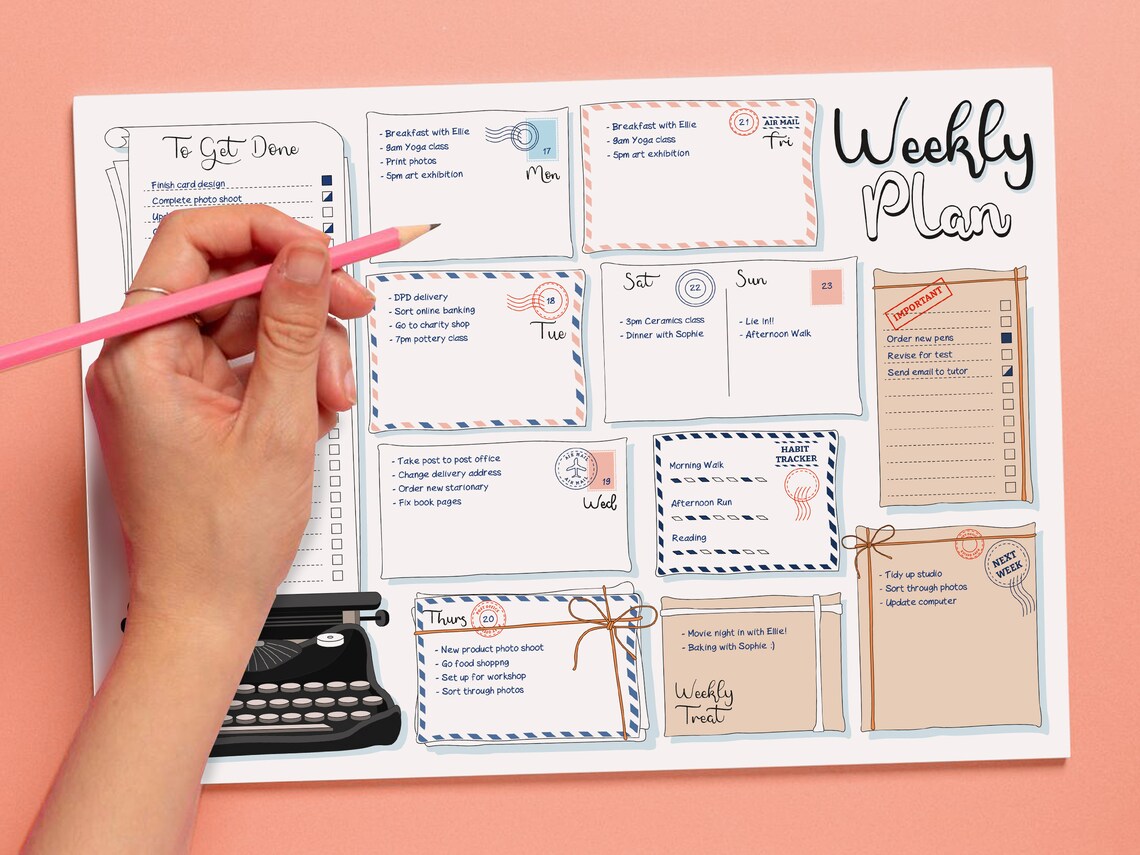 Weekly
Plan
To Get Done
Finish card design
Complete photo shoot
- Breakfast with Ellie
- 9am Yoga class
- Print photos
- 5pm art exhibition
17
Mon
- DPD delivery
- Sort online banking
- Go to charity shop
- 7pm pottery class
18
Tue
- Take post to post office
- Change delivery address
- Order new stationary
- Fix book pages
AIR MAIL
AIR MAIL
19
Wed
Thurs
20
- New product photo shoot
- Go food shoppng
- Set up for workshop
- Sort through photos
- Breakfast with Ellie
- 9am Yoga class
- 5pm art exhibition
21
AIR MAIL
Fri
Sat
22
- 3pm Ceramics class
- Dinner with Sophie
Sun
23
- Lie In!!
- Afternoon Walk
HABIT
TRACKER
Morning Walk
Afternoon Run
Reading
- Movie night in with Ellie!
- Baking with Sophie :)
Weekly
Treat
IMPORTANT
Order new pens
Revise for test
Send email to tutor
NEXT
WEEK
- Tidy up studio
- Sort through photos
- Update computer